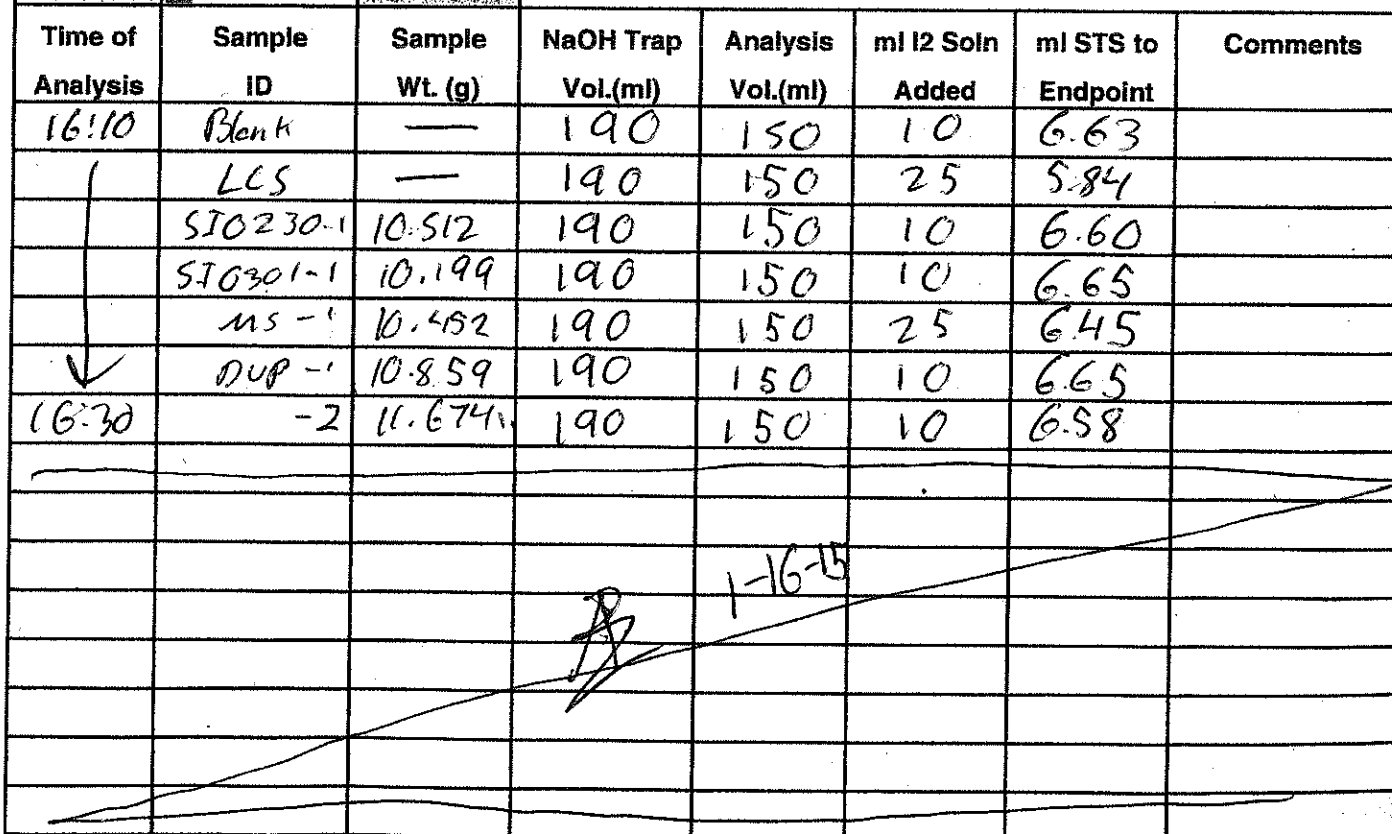 Time of Analysis Sample ID Sample Wt. (g) NaOH Trap Vol.(ml) Analysis Vol.(ml) ml I2 Soln Added ml STS to Endpoint Comments
16:10 Blank — 190 150 10 6.63
LCS — 190 150 25 5.84
SI0230-1 10.512 190 150 10 6.60
SI0301-1 10.199 190 150 10 6.65
MS -1 10.452 190 150 25 6.45
DUP -1 10.859 190 150 10 6.65
16:30 -2 11.674 190 150 10 6.58
1-16-15